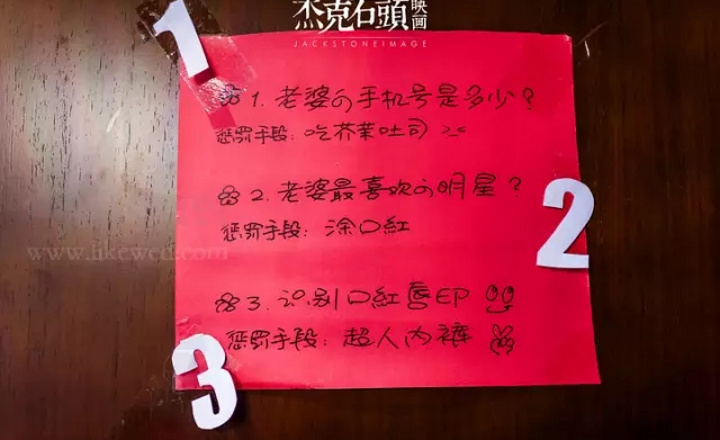 杰克石頭映画
JACKSTONEIMAGE
1
1. 老婆的手机号是多少?
惩罚手段: 吃芥茉吐司
2. 老婆最喜欢的明星?
惩罚手段: 涂口紅
2
www.likewed.com
3. 识别口紅唇印
惩罚手段: 超人内裤
3